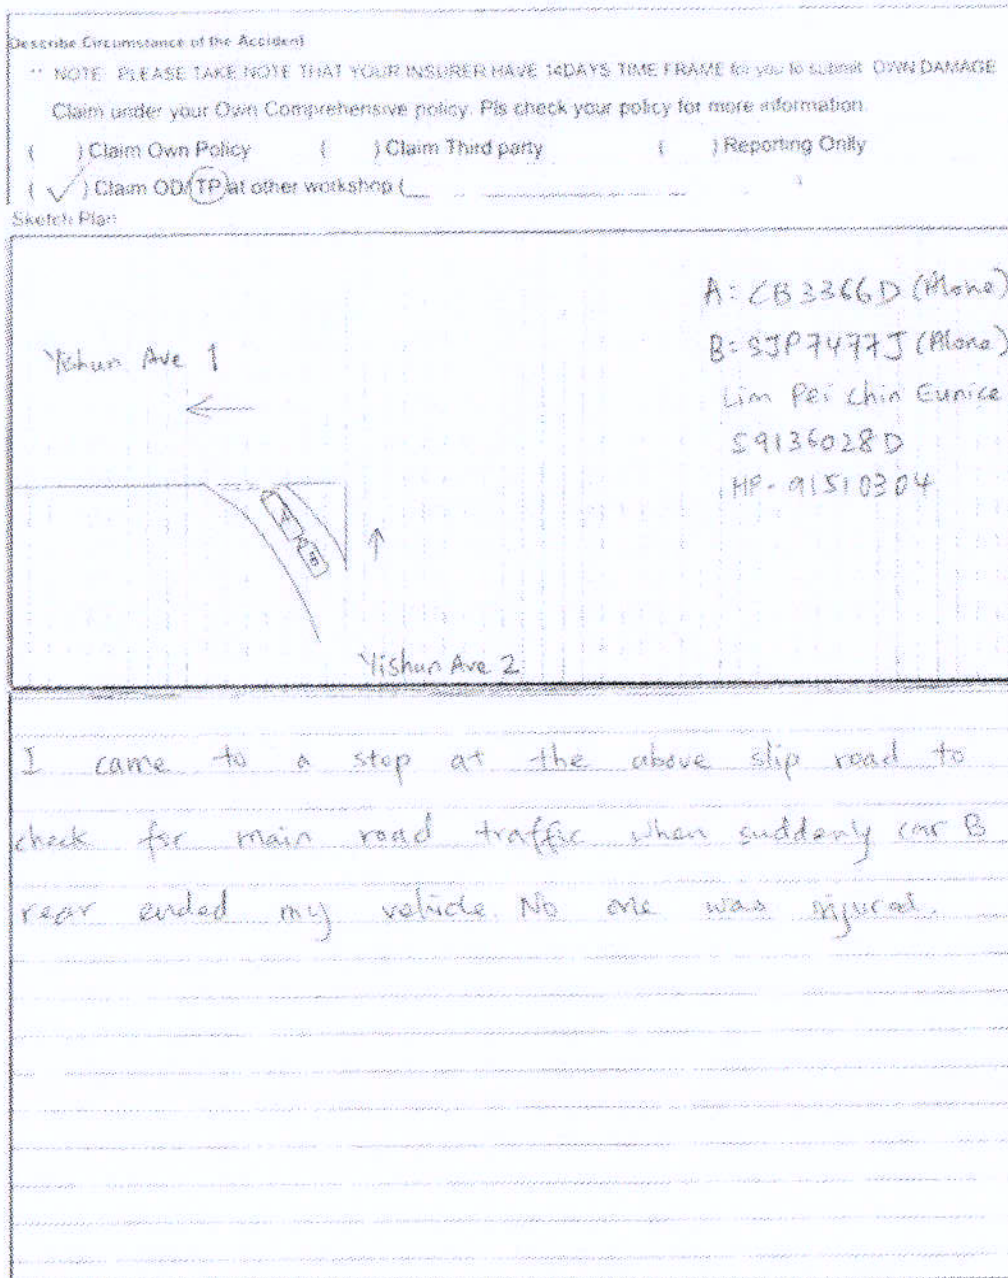 Describe Circumstance of the Accident
** NOTE: PLEASE TAKE NOTE THAT YOUR INSURER HAVE 14DAYS TIME FRAME for you to submit OWN DAMAGE
Claim under your Own Comprehensive policy. Pls check your policy for more information.
( ) Claim Own Policy ( ) Claim Third party ( ) Reporting Onlly
( ✓ ) Claim OD/TP at other workshop (
Sketch Plan
A: CB3366D (Alone)
B: SJP7497J (Alone)
Lim Pei Chin Eunice
S9136028D
HP- 91510304
Yishun Ave 1
A
B
Yishun Ave 2
I came to a stop at the above slip road to
check for main road traffic when suddenly car B
rear ended my vehicle. No one was injured.